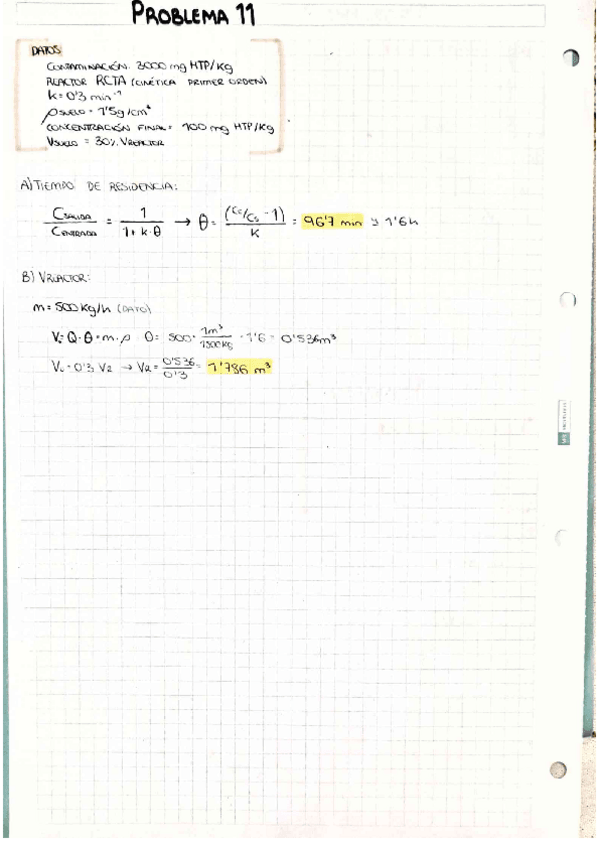 PROBLEMA 11
DATOS
CONTAMINACIÓN: 3000 mg HTP/Kg
REACTOR RCTA (CINÉTICA PRIMER ORDEN)
K = 0'3 min⁻¹
ρ SUELO = 1'5g/cm³
CONCENTRACIÓN FINAL = 100 mg HTP/Kg
VSUELO = 30% VREACTOR
A) TIEMPO DE RESIDENCIA:
CSALIDA / CENTRADA = 1 / 1 + K·θ → θ = (Ce/Cs - 1) / K = 96'7 min 1'6h
B) VREACTOR:
m = 500 Kg/h (DATO)
V = Q · θ = m · ρ θ = 500 · 1m³ / 1500Kg · 1'6 = 0'536m³
V = 0'3 V2 → V2 = 0'536 / 0'3 = 1'786 m³